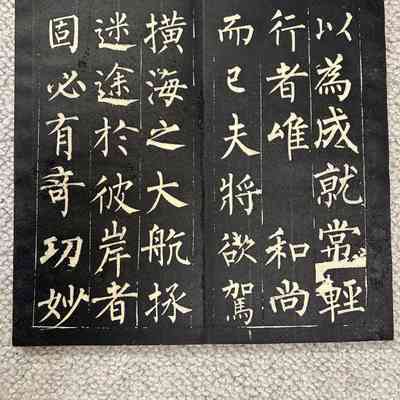 以為成就常輕
行者唯 和尚
而已夫將欲駕
橫海之大航拯
迷途於彼岸者
固必有奇功妙